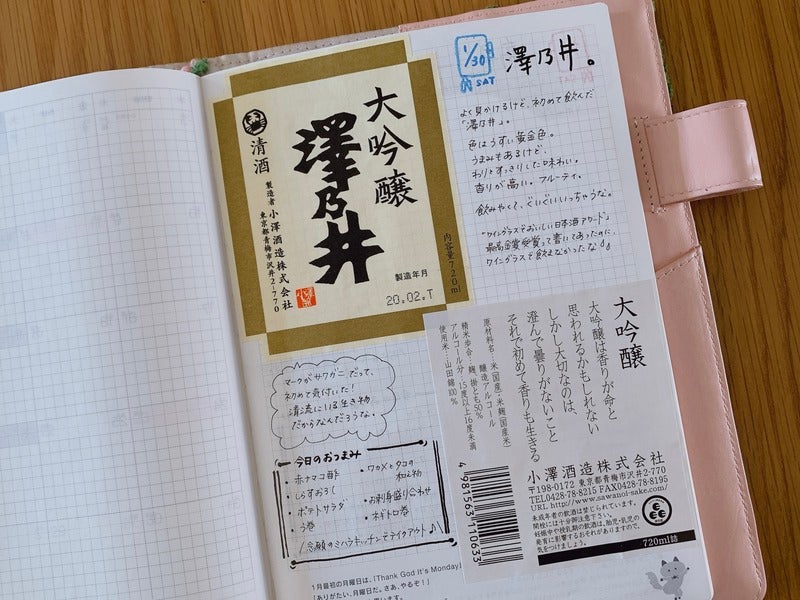 1/30
SAT
澤乃井。
よく見かけるけど、初めて飲んだ
「澤乃井」。
色はうすい黄金色。
うまみもあるけど、
わりとすっきりした味わい。
香りが高い。フルーティ。
飲みやすくて、ぐいぐいいっちゃうな。
"ワイングラスでおいしい日本酒アワード"
最高金賞受賞って書いてあったのに、
ワイングラスで飲まなかったな
大吟醸
澤乃井
清酒
製造者 小澤酒造株式会社
東京都青梅市沢井2-770
内容量720ml
製造年月
20.02.T
マークがサワガニだって、
初めて気付いた!
清流にいる生き物
だからなんだろうな。
今日のおつまみ
・赤ナマコ酢
・しらすおろし
・ポテトサラダ
・う巻
・ワカメとタコの
和え物
・お刺身盛り合わせ
・ネギトロ巻
念願のミハラキッチンでテイクアウト♪
大吟醸
大吟醸は香りが命と
思われるかもしれない
しかし大切なのは、
澄んで曇りがないこと
それで初めて香りも生きる
原材料名:米(国産)・米麹(国産米)
醸造アルコール
精米歩合:麹・掛とも50%
アルコール分:15度以上16度未満
使用米:山田錦100%
4981563110633
小澤酒造株式会社
〒198-0172 東京都青梅市沢井2-770
TEL0428-78-8215 FAX0428-78-8195
URL http://www.sawanoi-sake.com/
未成年者の飲酒は禁じられています。
開栓には十分御注意下さい。
妊娠中や授乳期の飲酒は、胎児・乳児の
発育に影響するおそれがありますので、
気をつけましょう。
720ml詰
1月最初の月曜日は、「Thank God It's Monday」
「ありがたい、月曜日だ。さあ、やるぞ!」